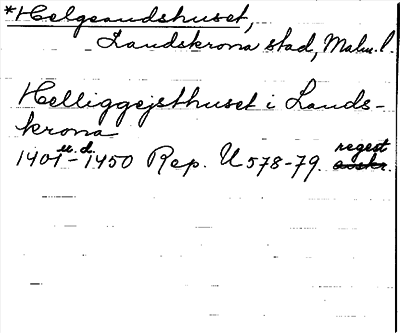 *Helgeandshuset,
Landskrona stad, Malm. l.
Helliggejsthuset i Lands-
krona
1401 u.d. - 1450 Rep. U 578-79. regest avskr.